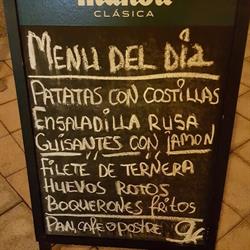 Mahou
CLÁSICA
MENU DEL DÍA
PATATAS CON COSTILLAS
ENSALADILLA RUSA
GUISANTES CON JAMON
FILETE DE TERNERA
HUEVOS ROTOS
BOQUERONES fRitOS
PAN, CAFE O POSTRE 9€